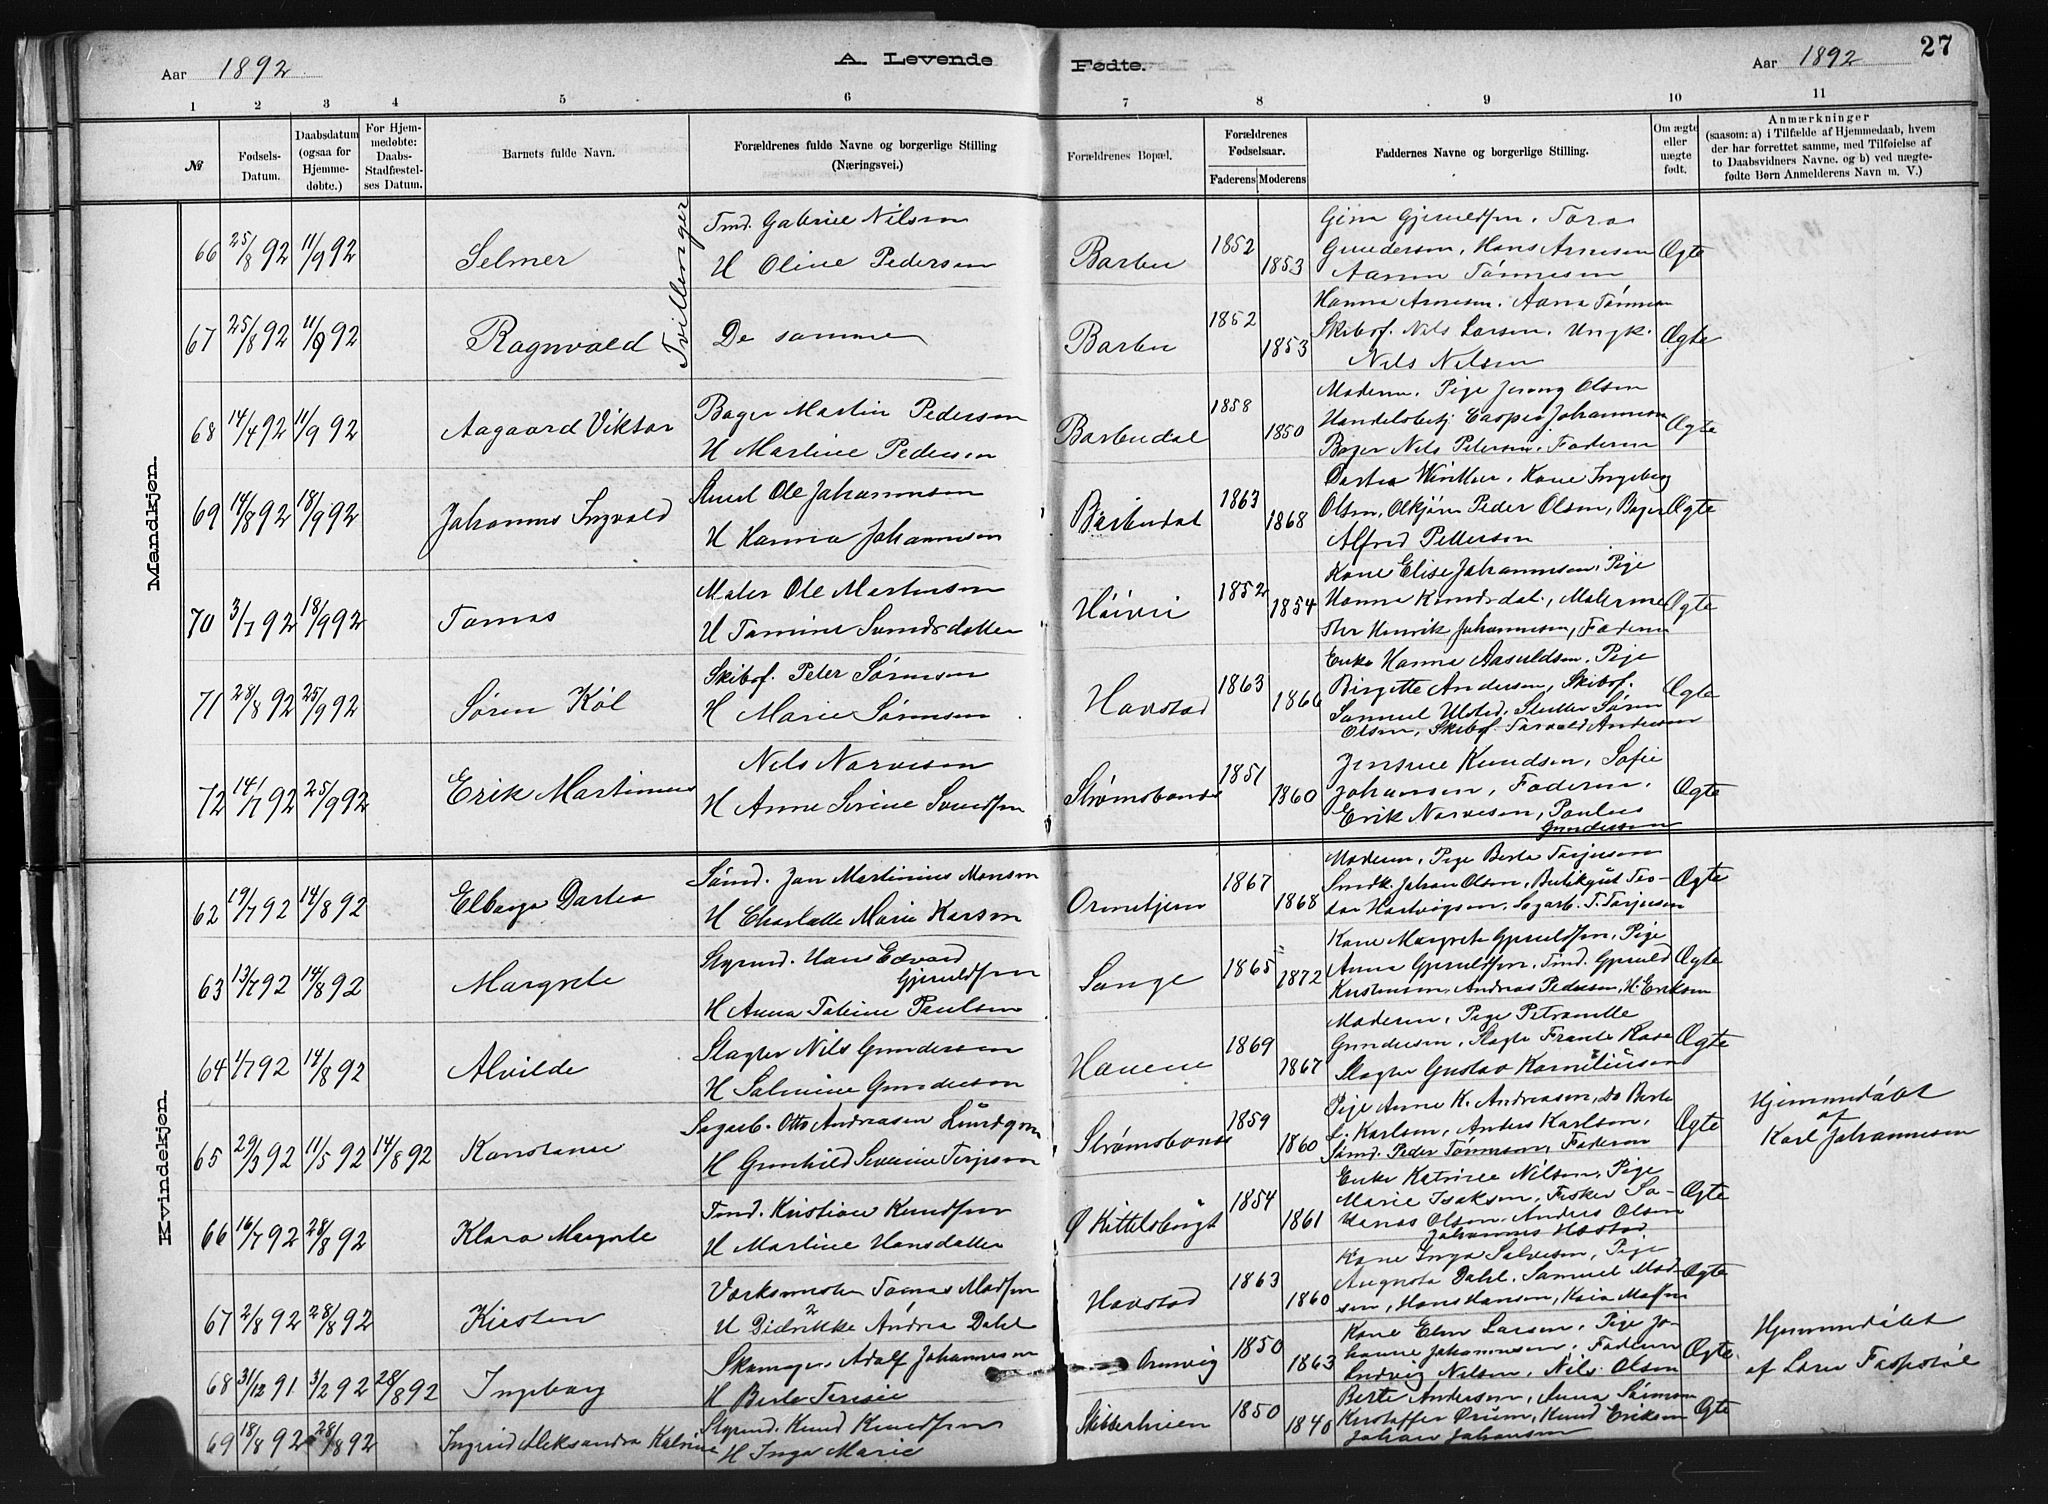 Aar 1892
A. Levende Fødte.
Aar 1892
27
1 2 3 4 5 6 7 8 9 10 11
№
Fødsels-Datum.
Daabsdatum (ogsaa for Hjemme-døbte.)
For Hjem-medøbte: Daabs-Stadfæstel-ses Datum.
Barnets fulde Navn.
Forældrenes fulde Navne og borgerlige Stilling (Næringsvei.)
Forældrenes Bopæl.
Forældrenes Fødselsaar.
Faderens Moderens
Faddernes Navne og borgerlige Stilling.
Om ægte eller uægte født.
Anmærkninger
(saasom: a) i Tilfælde af Hjemmedaab, hvem
der har forrettet samme, med Tilføielse af
to Daabsvidners Navne. og b) ved uægte-
fødte Børn Anmelderens Navn m. V.)
Mandkjøn.
Tvillinger
66 25/8 92 11/9 92 Selmer
Tmd. Gabriel Nilsen
H Oline Pedersen
Barbu 1852 1853
Gjeruldsen, Tora
Gundersen, Hans Arnesen
Aanne Tønnesen
Ægte
67 25/8 92 11/9 92 Ragnvald
De samme
Barbu 1852 1853
Hanna Arnesen, Aana Tønnesen
Skibsf. Nils Larsen, Ungk.
Nils Nilsen
Ægte
68 14/4 92 11/9 92 Aagaard Viktor
Bager Martin Pedersen
H Martine Pedersen
Barbudal 1858 1850
Moderen, Pige Jenny Olsen
Handelsbetj. Casper Johannesen
Bager Nils Petersen, Faderen
Ægte
69 14/8 92 18/9 92 Johannes Ingvald
Ole Johannesen
H Hanna Johannesen
Barbudal 1863 1868
Dortea Winther, Kone Ingeborg
Olsen, Peder Olsen, Bager
Alfred Pettersen
Ægte
70 3/7 92 18/9 92 Tomas
Maler Ole Martinsen
H Tomine Svendsdatter
1852 1854
Kone Elise Johannesen, Pige
Hanna Knudsdal, Malerme
ster Henrik Johannesen, Faderen
Ægte
71 28/8 92 25/9 92 Søren Køl
Skibsf. Peter Sørensen
H Marie Sørensen
Havstad 1863 1866
Enke Hanna Aasuldsen, Pige
Birgitte Andersen, Skibsf.
Samuel Ulsted, Søren
Olsen, Skibsf. Torvald Andersen
Ægte
72 14/7 92 25/9 92 Erik Martinius
Nils Narvesen
H Anne Serine Svendsen
Strømsbonæs 1851 1860
Jensine Knudsen, Sofie
Johansen, Faderen,
Erik Narvesen, Paulus
Gundersen
Ægte
Kvindekjøn.
62 19/7 92 14/8 92 Elborga Dortea
Sømd. Jan Martinius Monsen
H Charlotte Marie Karsen
1867 1868
Moderen, Pige Berta Torjusen
Smdk. Johan Olsen, Butikgut Teo-
dor Hartvigsen, Sagarb. T. Torjusen
Ægte
63 13/7 92 14/8 92 Margrete
Styrmd. Hans Edvard
Gjeruldsen
H Anna Tobine Paulsen
Songe 1865 1872
Kone Margrete Gjeruldsen, Pige
Anna Gjeruldsen, Tmd. Gjeruld
Kristensen, Andreas Pedersen, H. Eriksen
Ægte
64 1/7 92 14/8 92 Alvilde
Slagter Nils Gundersen
H Salmine Gundersen
1869 1867
Moderen, Pige Petronelle
Gundersen, Slagte
Slagter Gustav Korneliusen
Ægte
65 29/3 92 11/5 92 14/8 92 Konstanse
Sagarb. Otto Andreasen Lundqven
H Gunhild Severine Terjesen
Strømsbonæs 1859 1860
Pige Anne K. Andreasen, Do Berte
L. Karlsen, Anders Karlsen,
Sømd. Peder Tønnesen, Faderen
Ægte
Hjemmedøbt
af
Karl Johannesen
66 16/7 92 28/8 92 Klara Margrete
Tmd. Kristian Knudsen
H Martine Hansdatter
Ø Kittelsbugt 1854 1861
Enke Katrine Nilsen, Pige
Marie Isaksen, Fisker Jo-
hanas Olsen, Andreas Olsen
Johannes Havstad
Ægte
67 2/8 92 28/8 92 Kirsten
Værksmester Tomas Madsen
H Didrikke Andrea Dahl
Havstad 1863 1860
Kone Inga Salvesen, Pige
Augusta Dahl, Samuel Mad-
sen, Hans Hansen, Kaia Madsen
Ægte
68 31/12 91 3/2 92 28/8 92 Ingeborg
Skomager Adolf Johannesen
H Berte Teresie
Ormvig 1850 1863
Kone Elen Larsen, Pige Jo-
hanne Johannesen, Faderen
Ludvig Nilsen, Nils Olsen
Ægte
Hjemmedøbt
af
69 18/8 92 28/8 92 Ingrid Aleksandra Katrine
Styrmd. Knud Knudsen
H Inga Marie
Skibberheien 1850 1840
Berte Andersen, Anna Sørensen
Kristoffer Ørum, Knud Eriksen
Johan Johansen
Ægte